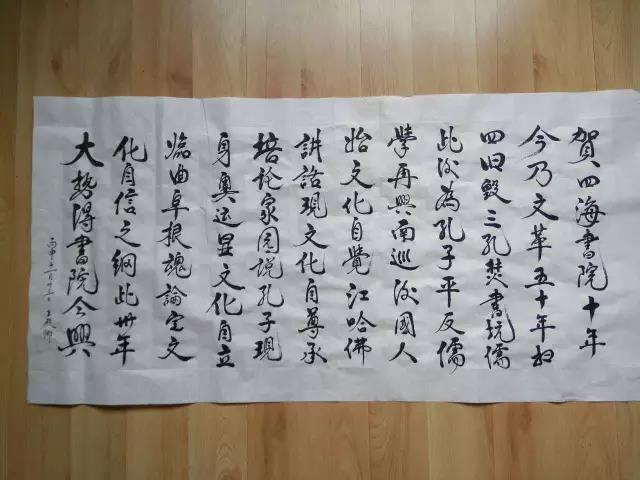 賀四海書院十年
今乃文革五十年
四旧毁三孔焚書坑儒
此後为孔子平反儒
學再興南巡後國人
始文化自覺江哈佛
讲話現文化自尊承
培论家国说孔子現
身奥运显文化自立
临曲阜根魂論定文
化自信之纲此卅年
大势得書院今興
丙申 月十三日 王殿卿